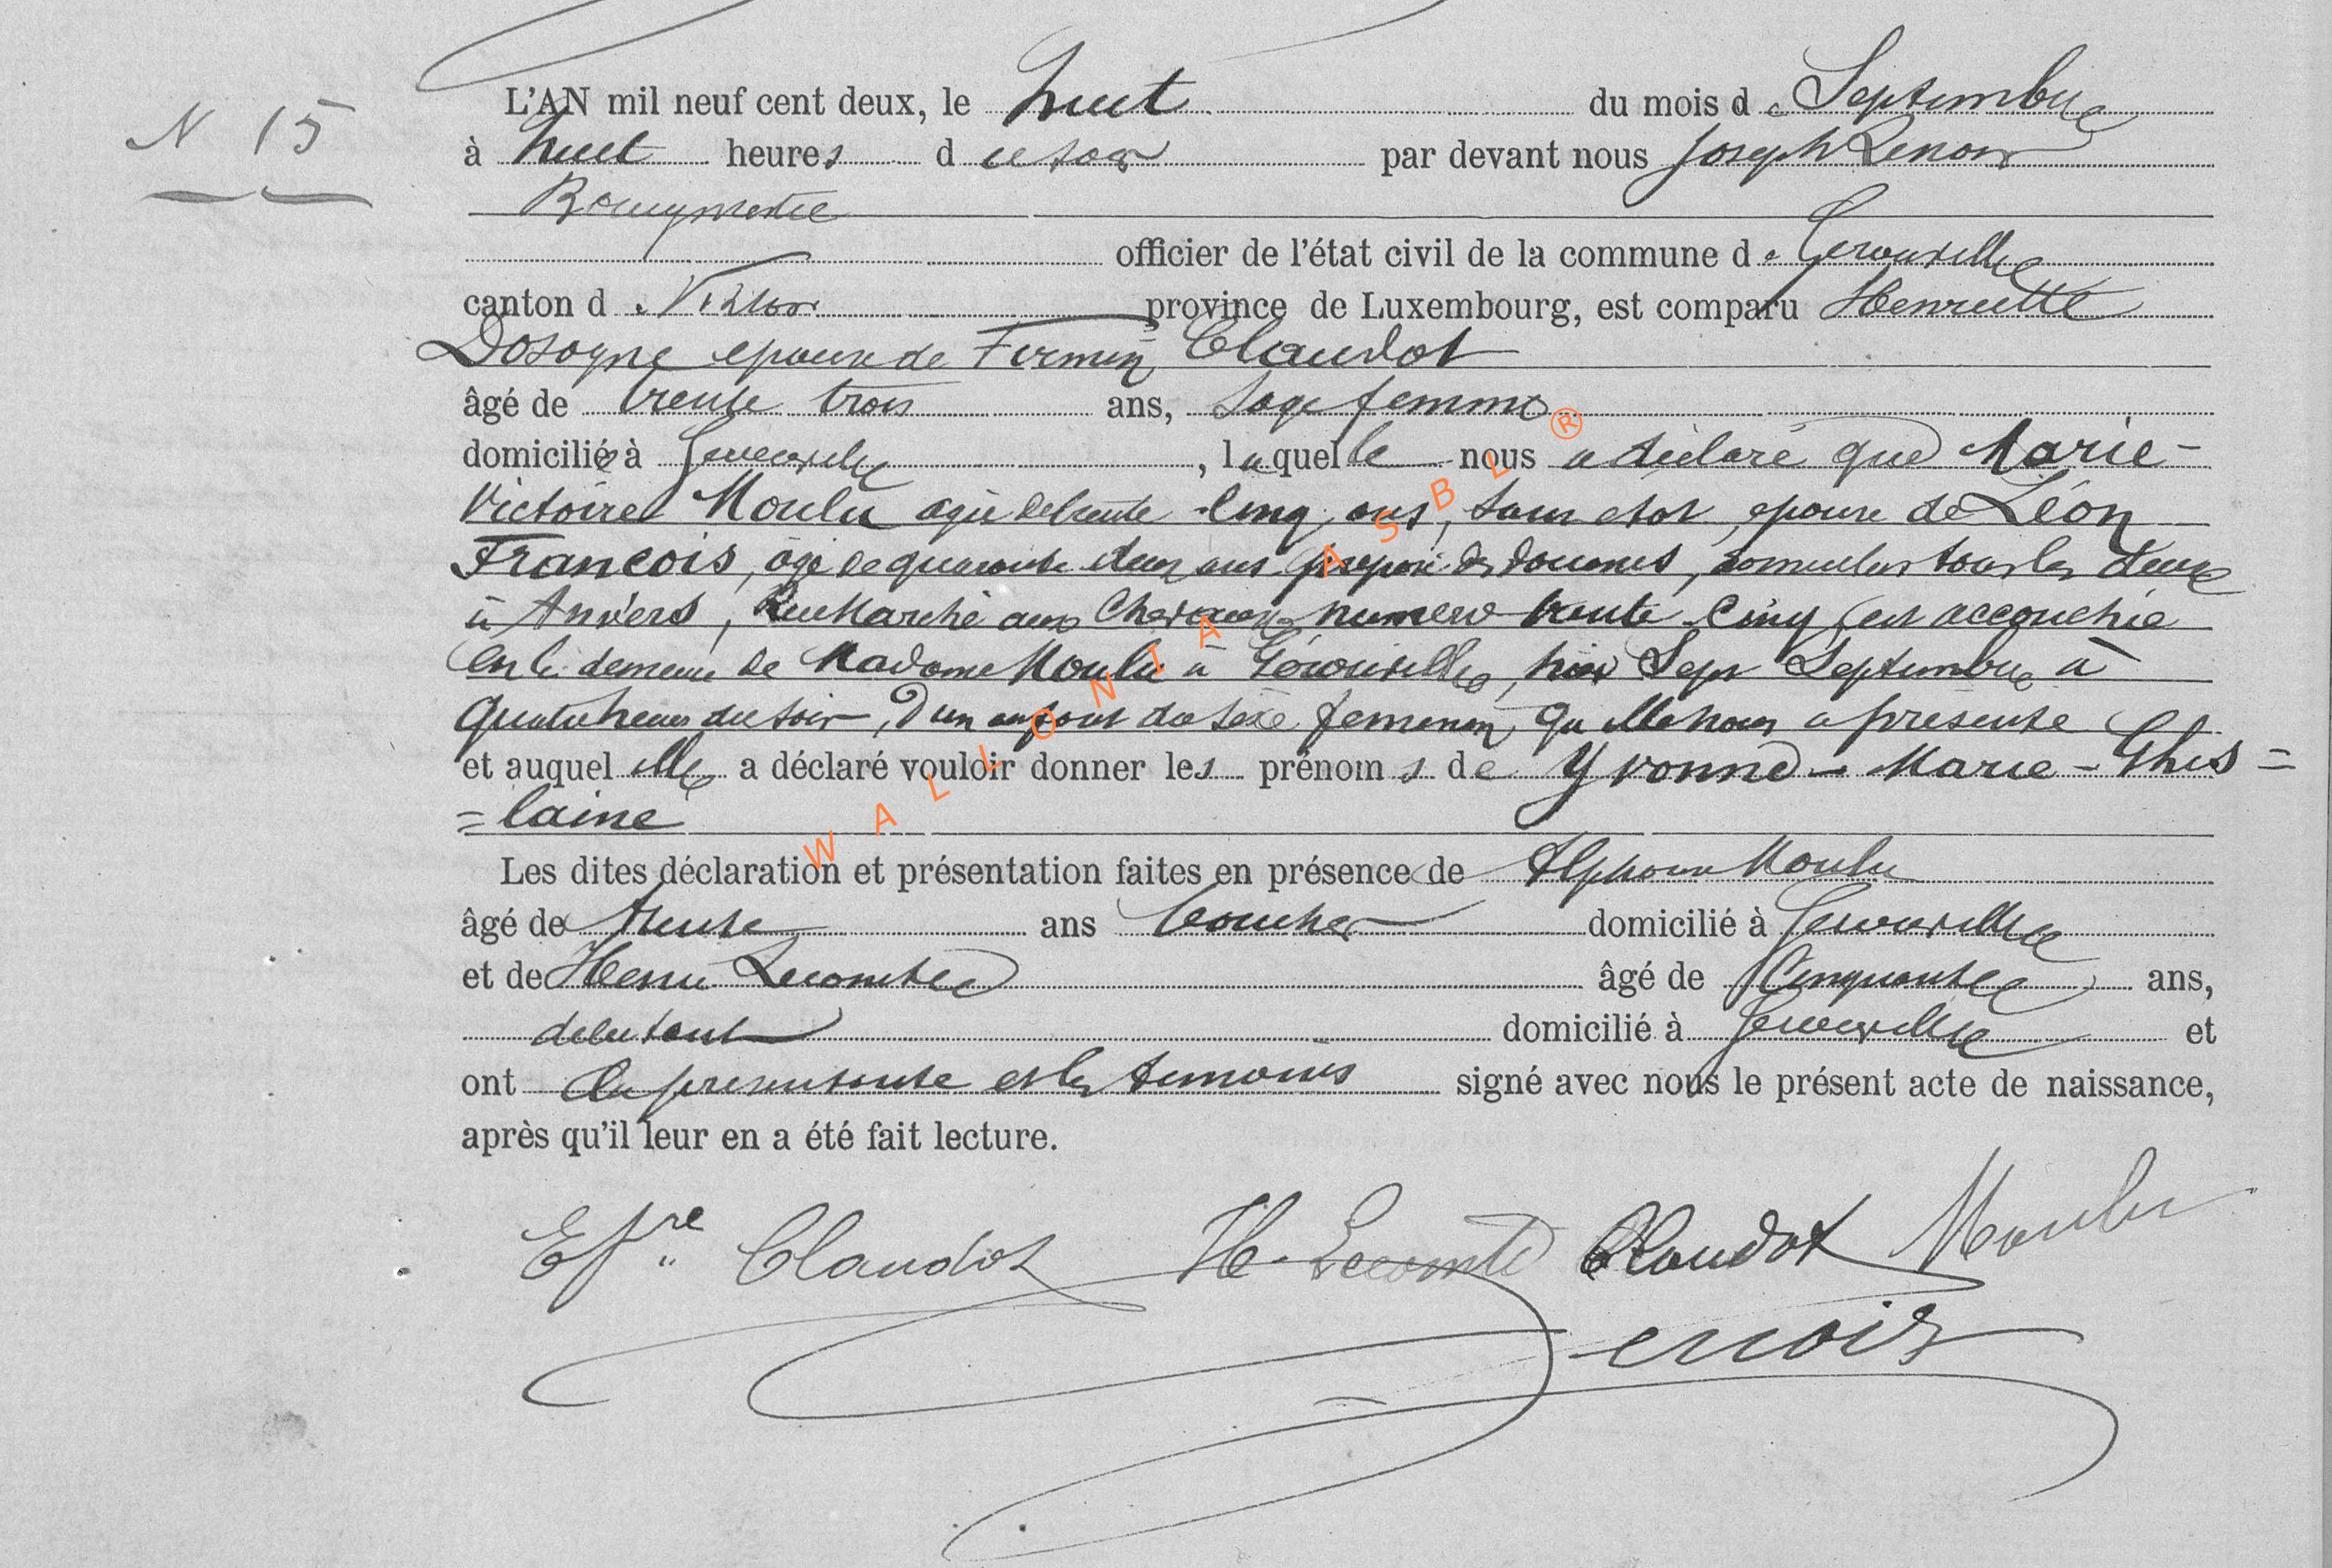 N 15
L'AN mil neuf cent deux, le huit du mois de Septembre
à huit heures du soir par devant nous Joseph Lenoir
Bourgmestre
officier de l'état civil de la commune de Gerouville
canton de Virton province de Luxembourg, est comparu Henriette
Dosogne epouse de Firmin Claudot
âgé de trente trois ans, Sage femme
domiciliée à Gerouville, laquelle nous a déclaré que Marie-
Victoire Moulu agée de trente-cinq ans, sans état, epouse de Léon
Francois, âgé de quarante deux ans préposé des douanes, domiciliés tous les deux
à Anvers, Rue Marché aux Chevaux numero trente cinq, est accouchée
en la demeure de Madame Moulu à Gérouville, hier Sept Septembre à
quatre heures du soir, d'un enfant du sexe femenin qu'elle nous a présenté
et auquel elle a déclaré vouloir donner les prénoms de Yvonne - Marie - Ghis=
=laine
Les dites déclaration et présentation faites en présence de Alphonse Moulu
âgé de trente ans boucher domicilié à Gerouville
et de Henri Lecomte âgé de Cinquante ans,
debutant domicilié à Gerouville et
ont la présentante et les temoins signé avec nous le présent acte de naissance,
après qu'il leur en a été fait lecture.
Claudot H. Lecomte Claudot Moulu
Lenoir
WALLONIA ASBL ®